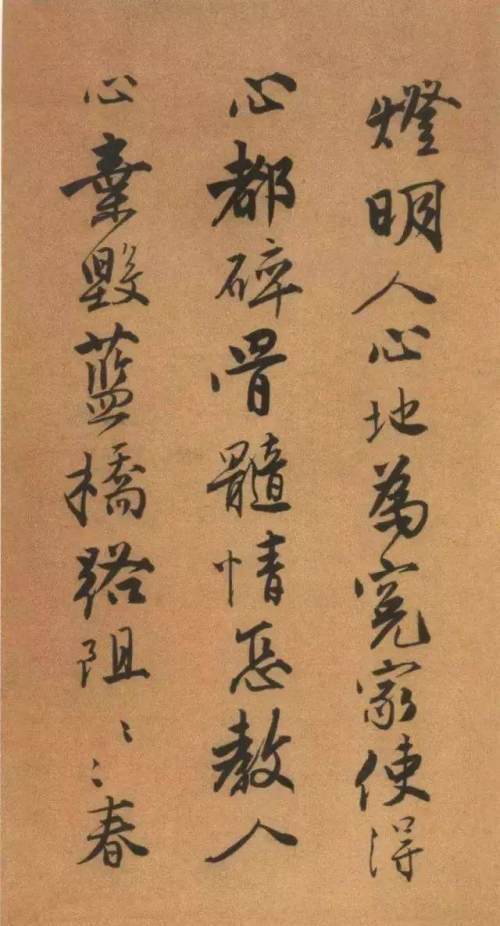 燈明人心地為寃家使得
心都碎骨髓情忘教人
心棄毀藍橋路阻〻〻春